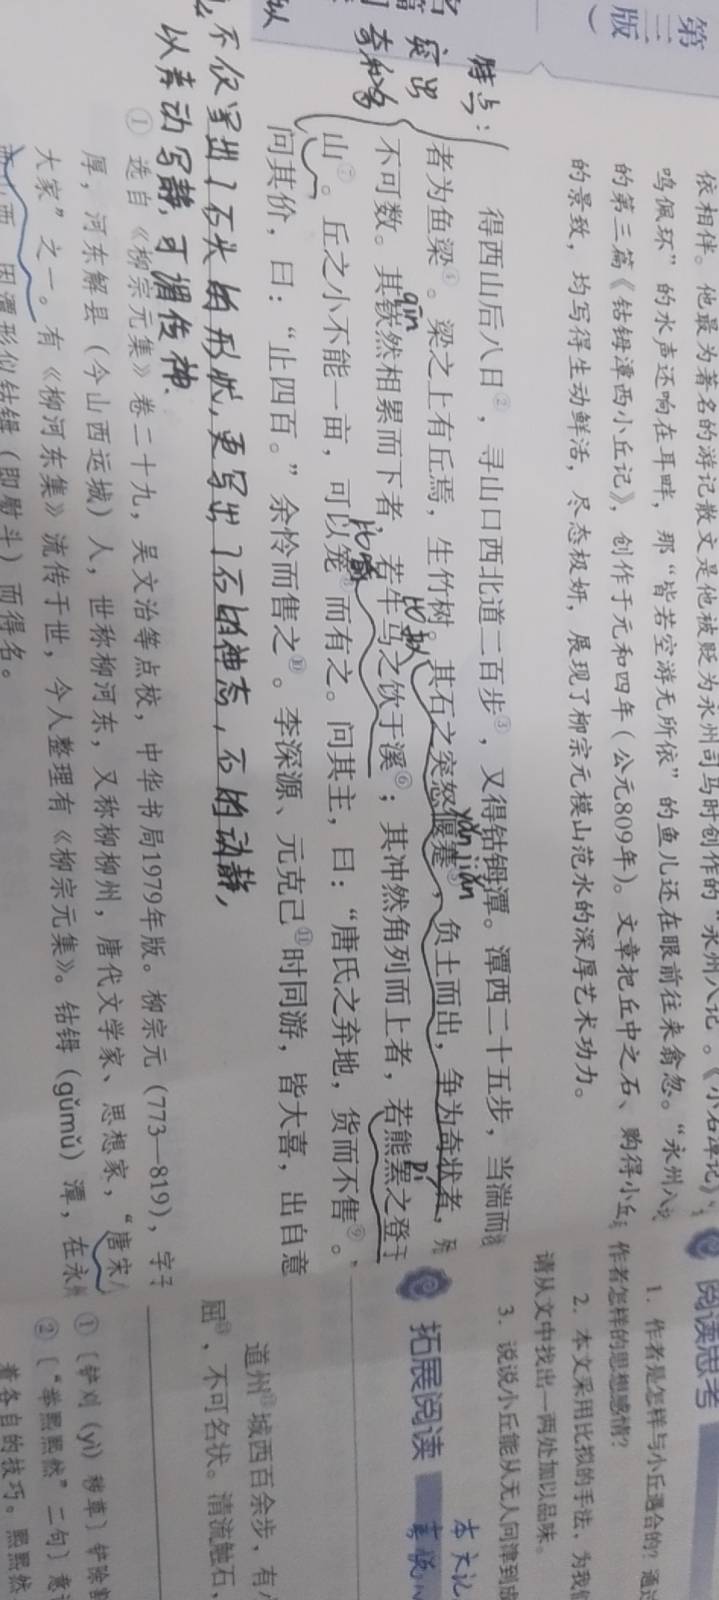 第三版
依相伴。他最为著名的游记散文是他被贬为永州司马时创作的“永州八记”。《小石潭记》
鸣佩环”的水声还响在耳畔，那“皆若空游无所依”的鱼儿还在眼前往来翕忽。“永州八记
的第三篇《钴鉧潭西小丘记》，创作于元和四年（公元809年）。文章把丘中之石、购得小丘
的景致，均写得生动鲜活，尽态极妍，展现了柳宗元模山范水的深厚艺术功力。
特点：
突出
奇和多
得西山后八日②，寻山口西北道二百步③，又得钴鉧潭。潭西二十五步，当湍而
yǎn jiǎn
者为鱼梁④。梁之上有丘焉，生竹树。其石之突怒偃蹇⑤，负土而出，争为奇状者，
比拟
qīn
不可数。其嵚然相累而下者，若牛马之饮于溪⑥；其冲然角列而上者，若熊罴之登于
比喻
pí
山⑦。丘之小不能一亩，可以笼⑧而有之。问其主，曰：“唐氏之弃地，货而不售⑨。”
问其价，曰：“止四百。”余怜而售之⑩。李深源、元克己⑪时同游，皆大喜，出自意
不仅写出了石头的形状，更写出了石的神态，石的动静，
以青动写静，可谓传神.
① 选自《柳宗元集》卷二十九，吴文治等点校，中华书局1979年版。柳宗元（773—819），字子
厚，河东解县（今山西运城）人，世称柳河东，又称柳柳州，唐代文学家、思想家，“唐宋八
大家”之一。有《柳河东集》流传于世，今人整理有《柳宗元集》。钴鉧（gǔmǔ）潭，在永州
西，因潭形似钴鉧（即熨斗）而得名。
阅读思考
1. 作者是怎样与小丘遇合的？通过
作者怎样的思想感情？
2. 本文采用比拟的手法，为我们
请从文中找出一两处加以品味。
3. 说说小丘能从无人问津到成
拓展阅读
本文记
道州城西百余步，有小
屈，不可名状。清流触石，
①〔铲刈（yì）秽草〕铲除割
②〔“举熙熙然”二句〕意
着各自的技巧。熙熙然